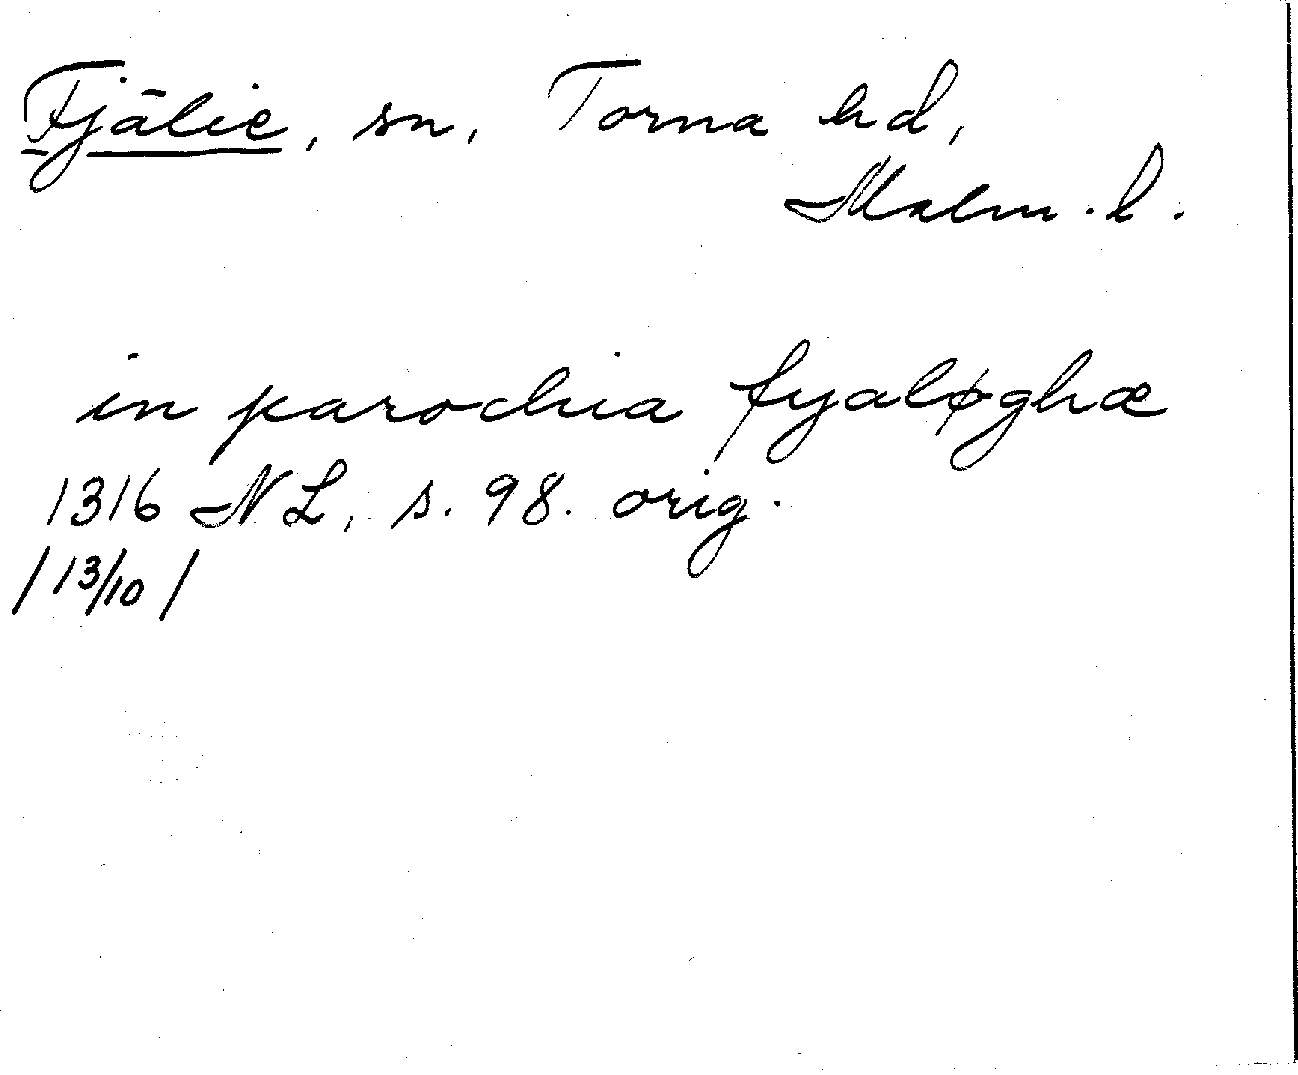 Fjälie, sn, Torna hd,
Malm. l.
in parochia fyaløghæ
1316 NL, s. 98. orig.
/ 13/10 /